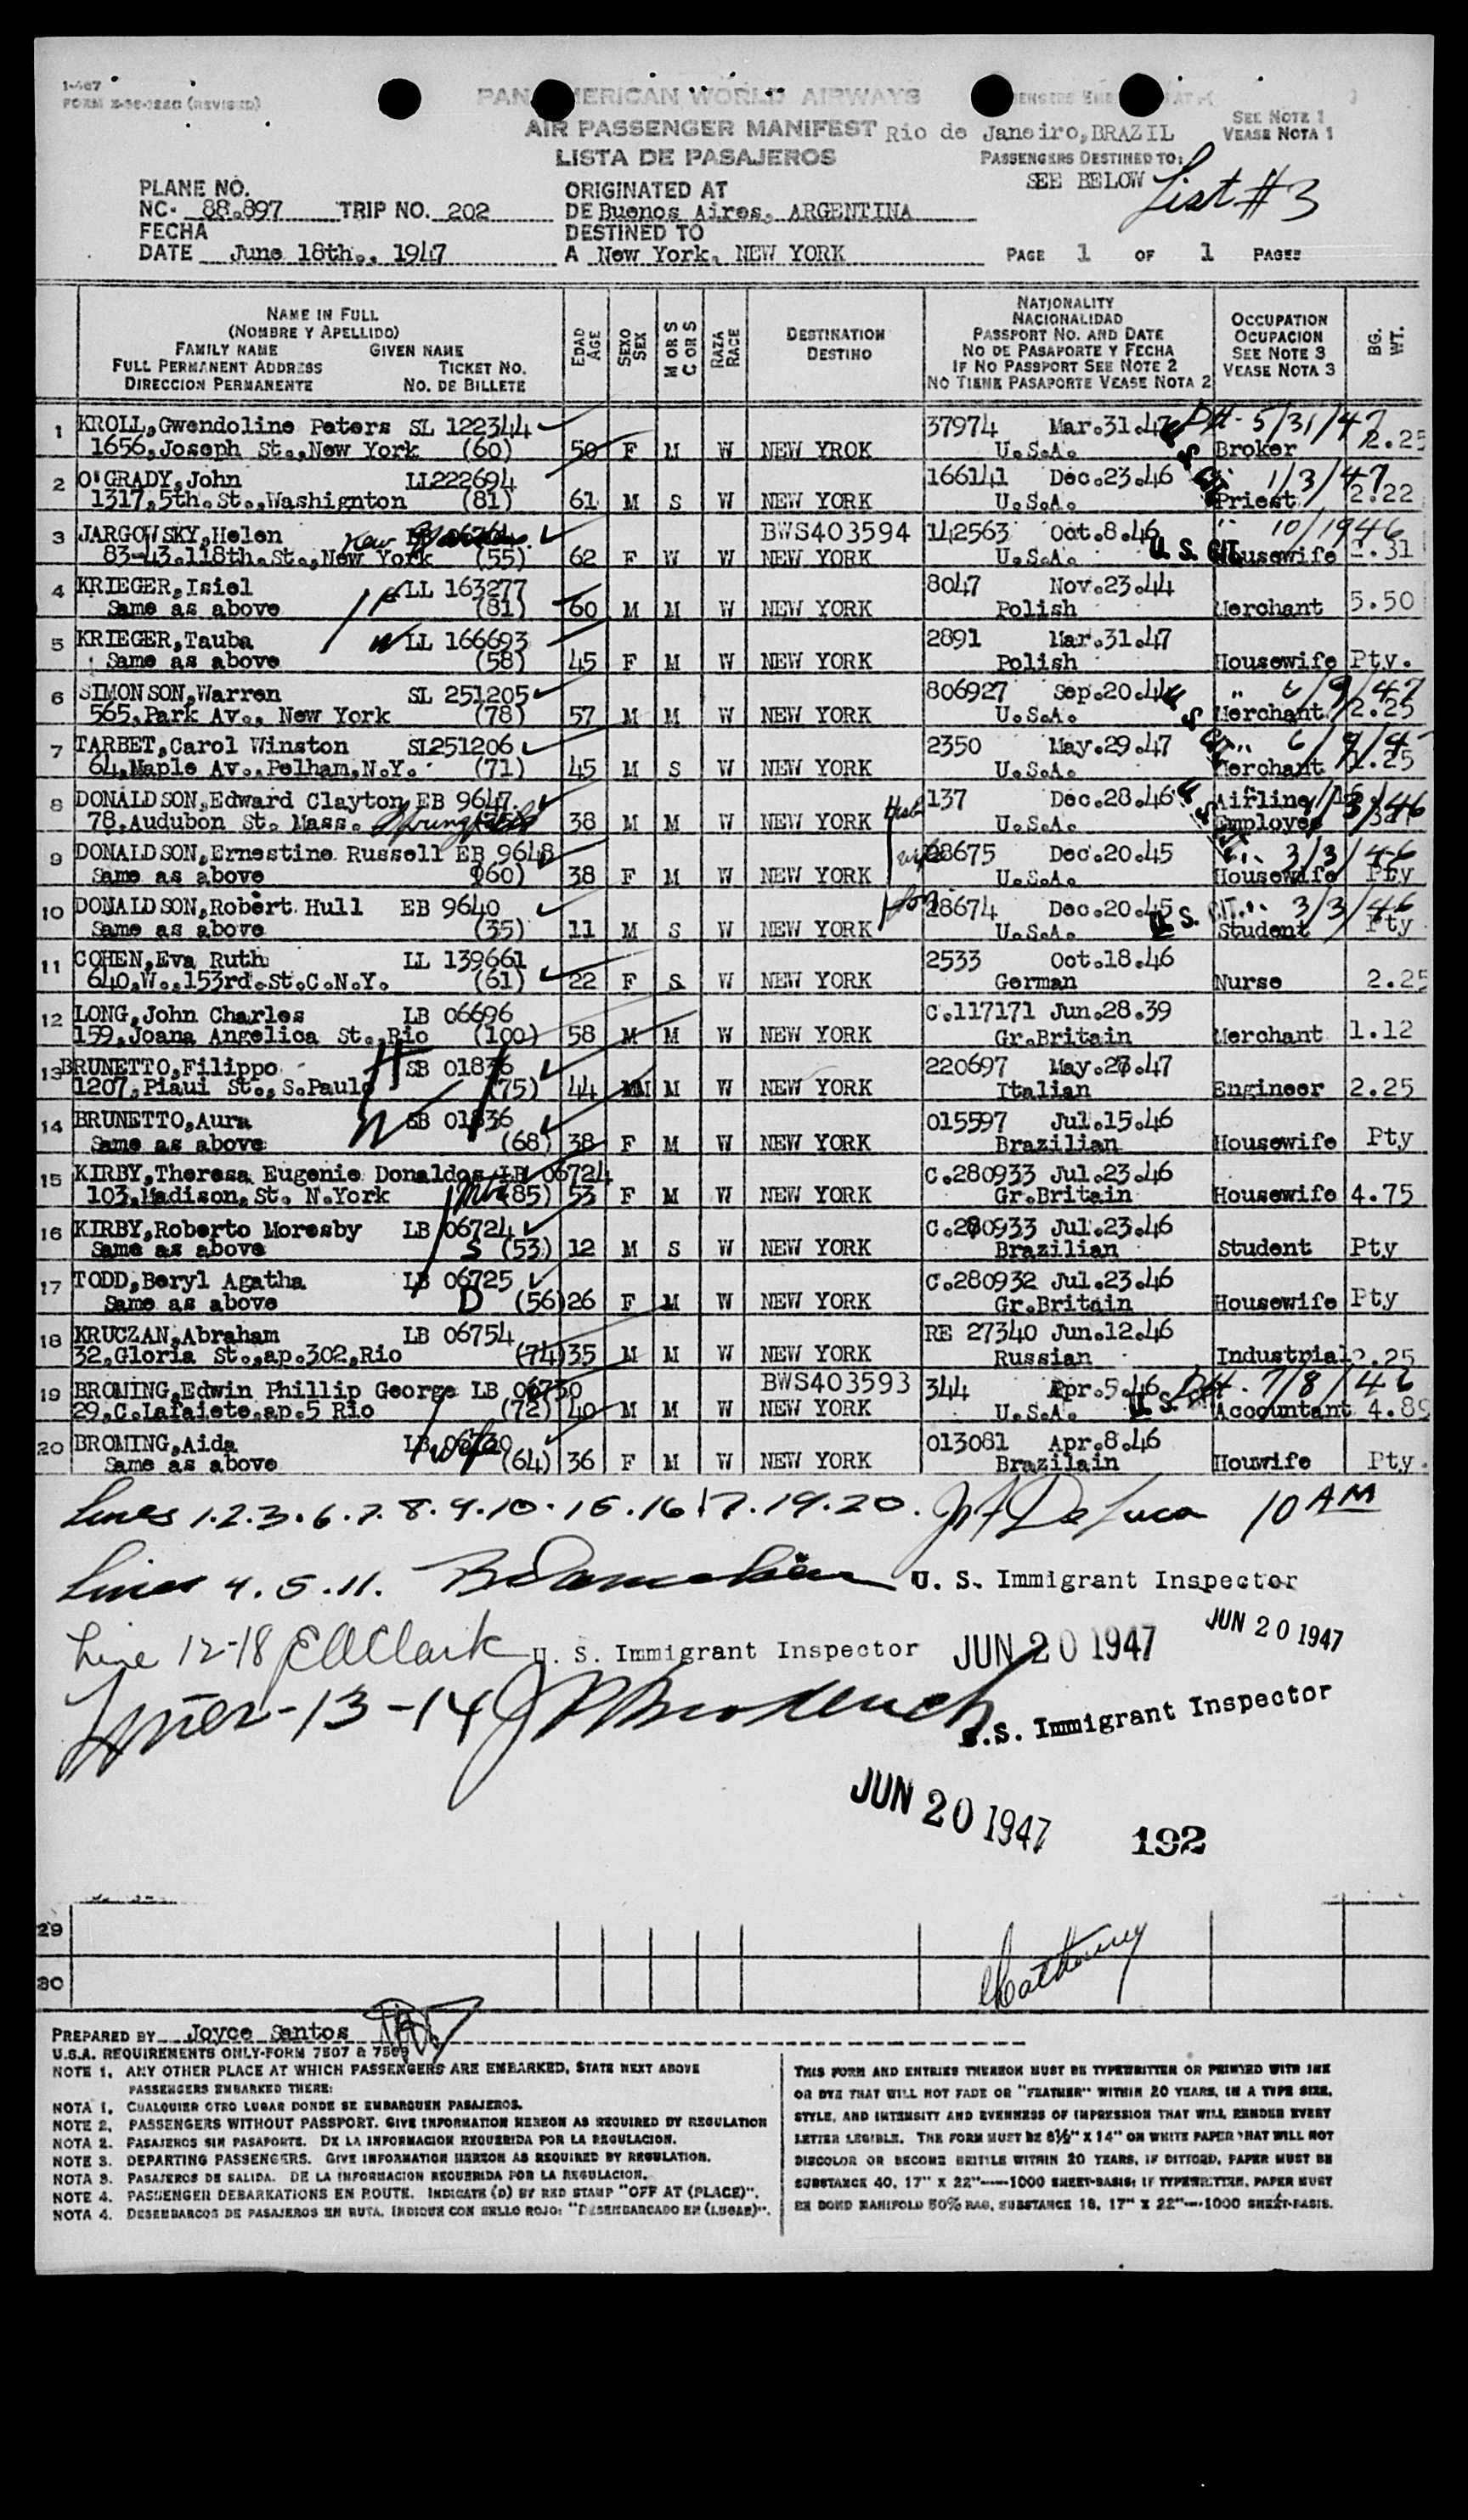 I-467
FORM
(REVISED)
PAN AMERICAN WORLD AIRWAYS
AIR PASSENGER MANIFEST Rio de Janeiro, BRAZIL
SEE NOTE 1
VEASE NOTA 1
LISTA DE PASAJEROS
PASSENGERS DESTINED TO:
SEE BELOW
List #3
PLANE NO.
NC- 88.897 TRIP NO. 202
ORIGINATED AT
DE Buenos Aires, ARGENTINA
FECHA
DATE June 18th., 1947
DESTINED TO
A New York, NEW YORK
PAGE 1 OF 1 PAGES
NAME IN FULL
(NOMBRE Y APELLIDO)
FAMILY NAME GIVEN NAME
FULL PERMANENT ADDRESS TICKET NO.
DIRECCION PERMANENTE NO. DE BILLETE
EDAD AGE
SEXO SEX
M OR S C OR S
RAZA RACE
DESTINATION
DESTINO
NATIONALITY
NACIONALIDAD
PASSPORT NO. AND DATE
NO DE PASAPORTE Y FECHA
IF NO PASSPORT SEE NOTE 2
NO TIENE PASAPORTE VEASE NOTA 2
OCCUPATION
OCUPACION
SEE NOTE 3
VEASE NOTA 3
BG. WT.
1 KROLL, Gwendoline Peters SL 122344 37974 Mar.31.47 5/31/47
1656, Joseph St., New York (60) 50 F M W NEW YROK U.S.A. Broker 2.25
2 O'GRADY, John LL222694 166141 Dec.23.46 1/3/47
1317, 5th. St., Washignton (81) 61 M S W NEW YORK U.S.A. Priest 2.22
3 JARGOWSKY, Helen BWS403594 142563 Oct.8.46 10/1946
83-43.118th. St., New York (55) 62 F W W NEW YORK U.S.A. U. S. CIT. Housewife 2.31
4 KRIEGER, Isiel LL 163277 8047 Nov.23.44
Same as above (81) 60 M M W NEW YORK Polish Merchant 5.50
5 KRIEGER, Tauba LL 166693 2891 Mar.31.47
Same as above (58) 45 F M W NEW YORK Polish Housewife Pty.
6 SIMONSON, Warren SL 251205 806927 Sep.20.44 6/9/47
565, Park Av., New York (78) 57 M M W NEW YORK U.S.A. Merchant 2.25
7 TARBET, Carol Winston SL251206 2350 May.29.47 6/9/47
64, Maple Av., Pelham, N.Y. (71) 45 M S W NEW YORK U.S.A. Merchant 1.25
8 DONALDSON, Edward Clayton EB 9647 Husb 137 Dec.28.46 Airline
78, Audubon St. Mass. Springfield 38 M M W NEW YORK U.S.A. Employee
9 DONALDSON, Ernestine Russell EB 9648 wife 28675 Dec.20.45 3/3/46
Same as above (60) 38 F M W NEW YORK U.S.A. Housewife Pty
10 DONALDSON, Robert Hull EB 9640 Son 28674 Dec.20.45 3/3/46
Same as above (35) 11 M S W NEW YORK U.S.A. U. S. CIT. Student Pty
11 COHEN, Eva Ruth LL 139661 2533 Oct.18.46
640, W., 153rd. St. C.N.Y. (61) 22 F S W NEW YORK German Nurse 2.25
12 LONG, John Charles LB 06696 C.117171 Jun.28.39
159, Joana Angelica St., Rio (100) 58 M M W NEW YORK Gr.Britain Merchant 1.12
13 BRUNETTO, Filippo H SB 01836 220697 May.27.47
1207, Piaui St., S.Paulo (75) 44 M M W NEW YORK Italian Engineer 2.25
14 BRUNETTO, Aura W SB 01836 015597 Jul.15.46
Same as above (68) 38 F M W NEW YORK Brazilian Housewife Pty
15 KIRBY, Theresa Eugenie Donaldos LB 06724 C.280933 Jul.23.46
103, Madison, St. N.York (85) 53 F M W NEW YORK Gr.Britain Housewife 4.75
16 KIRBY, Roberto Moresby LB 06724 C.280933 Jul.23.46
Same as above S (53) 12 M S W NEW YORK Brazilian Student Pty
17 TODD, Beryl Agatha LB 06725 C.280932 Jul.23.46
Same as above D (56) 26 F M W NEW YORK Gr.Britain Housewife Pty
18 KRUCZAN, Abraham LB 06754 RE 27340 Jun.12.46
32, Gloria St., ap.302, Rio (74) 35 M M W NEW YORK Russian Industrial 2.25
19 BROMING, Edwin Phillip George LB 06730 BWS403593 344 Apr.5.46 7/8/46
29, C.Lafaiete, ap.5 Rio (72) 40 M M W NEW YORK U.S.A. U. S. Accountant 4.89
20 BROMING, Aida LB 06730 wife 013081 Apr.8.46
Same as above (64) 36 F M W NEW YORK Brazilain Houwife Pty.
Lines 1.2.3.6.7.8.9.10.15.16.17.19.20. De Luca 10 AM
Lines 4.5.11. U. S. Immigrant Inspector
JUN 20 1947
Line 12-18 E A Clark U. S. Immigrant Inspector JUN 20 1947
Lines - 13 - 14 U.S. Immigrant Inspector
JUN 20 1947
192
29
30
PREPARED BY Joyce Santos
U.S.A. REQUIREMENTS ONLY-FORM 7507 & 7509
NOTE 1. ANY OTHER PLACE AT WHICH PASSENGERS ARE EMBARKED, STATE NEXT ABOVE
PASSENGERS EMBARKED THERE:
NOTA 1. CUALQUIER OTRO LUGAR DONDE SE EMBARQUEN PASAJEROS.
NOTE 2. PASSENGERS WITHOUT PASSPORT. GIVE INFORMATION HEREON AS REQUIRED BY REGULATION
NOTA 2. PASAJEROS SIN PASAPORTE. DE LA INFORMACION REQUERIDA POR LA REGULACION.
NOTE 3. DEPARTING PASSENGERS. GIVE INFORMATION HEREON AS REQUIRED BY REGULATION.
NOTA 3. PASAJEROS DE SALIDA. DE LA INFORMACION REQUERIDA POR LA REGULACION.
NOTE 4. PASSENGER DEBARKATIONS EN ROUTE. INDICATE (D) BY RED STAMP "OFF AT (PLACE)".
NOTA 4. DESEMBARCOS DE PASAJEROS EN RUTA. INDIQUE CON SELLO ROJO: "DESEMBARCADO EN (LUGAR)".
THIS FORM AND ENTRIES THEREON MUST BE TYPEWRITTEN OR PRINTED WITH INK
OR DYE THAT WILL NOT FADE OR "FEATHER" WITHIN 20 YEARS, IN A TYPE SIZE,
STYLE, AND INTENSITY AND EVENNESS OF IMPRESSION THAT WILL RENDER EVERY
LETTER LEGIBLE. THE FORM MUST BE 8½" X 14" ON WHITE PAPER THAT WILL NOT
DISCOLOR OR BECOME BRITTLE WITHIN 20 YEARS, IF DITTOED, PAPER MUST BE
SUBSTANCE 40, 17" X 22"----1000 SHEET-BASIS; IF TYPEWRITTEN, PAPER MUST
BE BOND MANIFOLD 50% RAG, SUBSTANCE 16, 17" X 22"---1000 SHEET-BASIS.